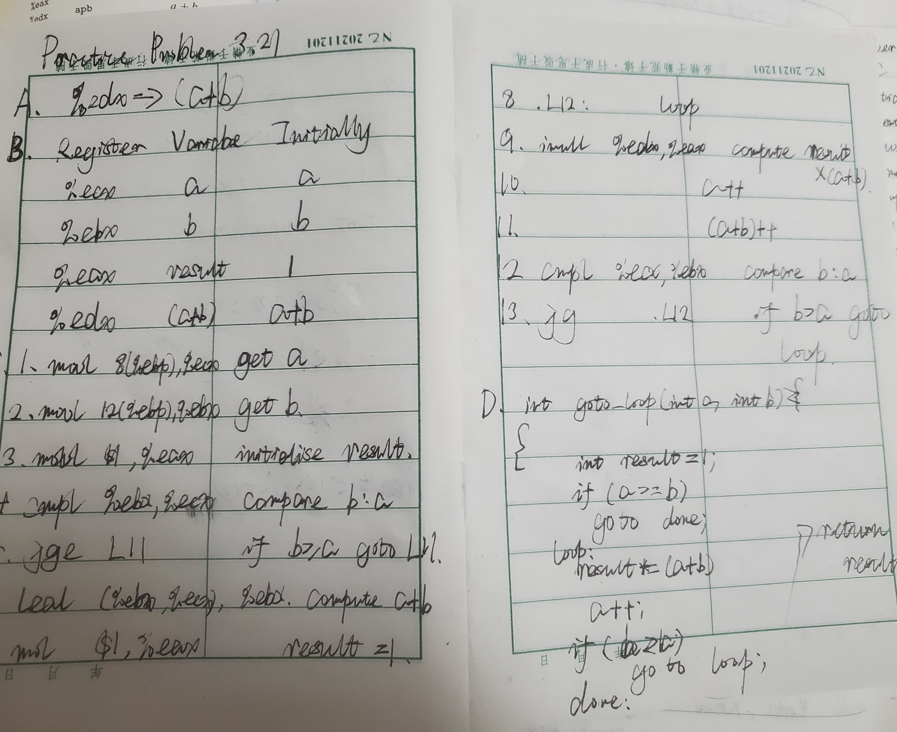 %eax
%edx apb a+b
Practice Problem 3.21
NC 20211201
A. %edx => (a+b)
B. Register Variabe Initially
%ecx a a
%ebx b b
%eax result 1
%edx (a+b) a+b
1. movl 8(%ebp),%ecx get a
2. movl 12(%ebp),%ebx get b
3. movl $1, %eax initialise result.
cmpl %ebx, %ecx compare b:a
jge L11 if b>,a goto L11.
leal (%ebx,%ecx), %ebx. compute a+b
movl $1, %eax result =1
年 月 日
业精于勤荒于嬉·行成于思毁于随 NC 20211201
8 .L12: loop
9. imull %edx,%eax compute result
x(a+b).
10. a++
11. (a+b)++
12 cmpl %ecx,%ebx compare b:a
13. jg .L12 if b>a goto
loop
D. int goto_loop(int a, int b)
{
int result =1;
if (a>=b)
goto done;
loop:
result *= (a+b)
return
result
a++;
if (b>a)
goto loop;
done:
日